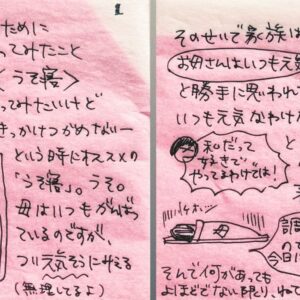 ために
ってみたこと
<うそ寝>
ってみたいけど
きっかけつかめないー
という時にオススメの
「うそ寝」。うそ。
母はいつもがんばっ
ているのですが、
つい元気そうに
(無理してるよ)
そのせいで家族は
お母さんはいつも元気
と勝手に思われて
いつも元気なわけな
と
私だって
好きで
やってるわけでは!
調
の
今日は
そんで何があっても
よほどでない限り、ねて